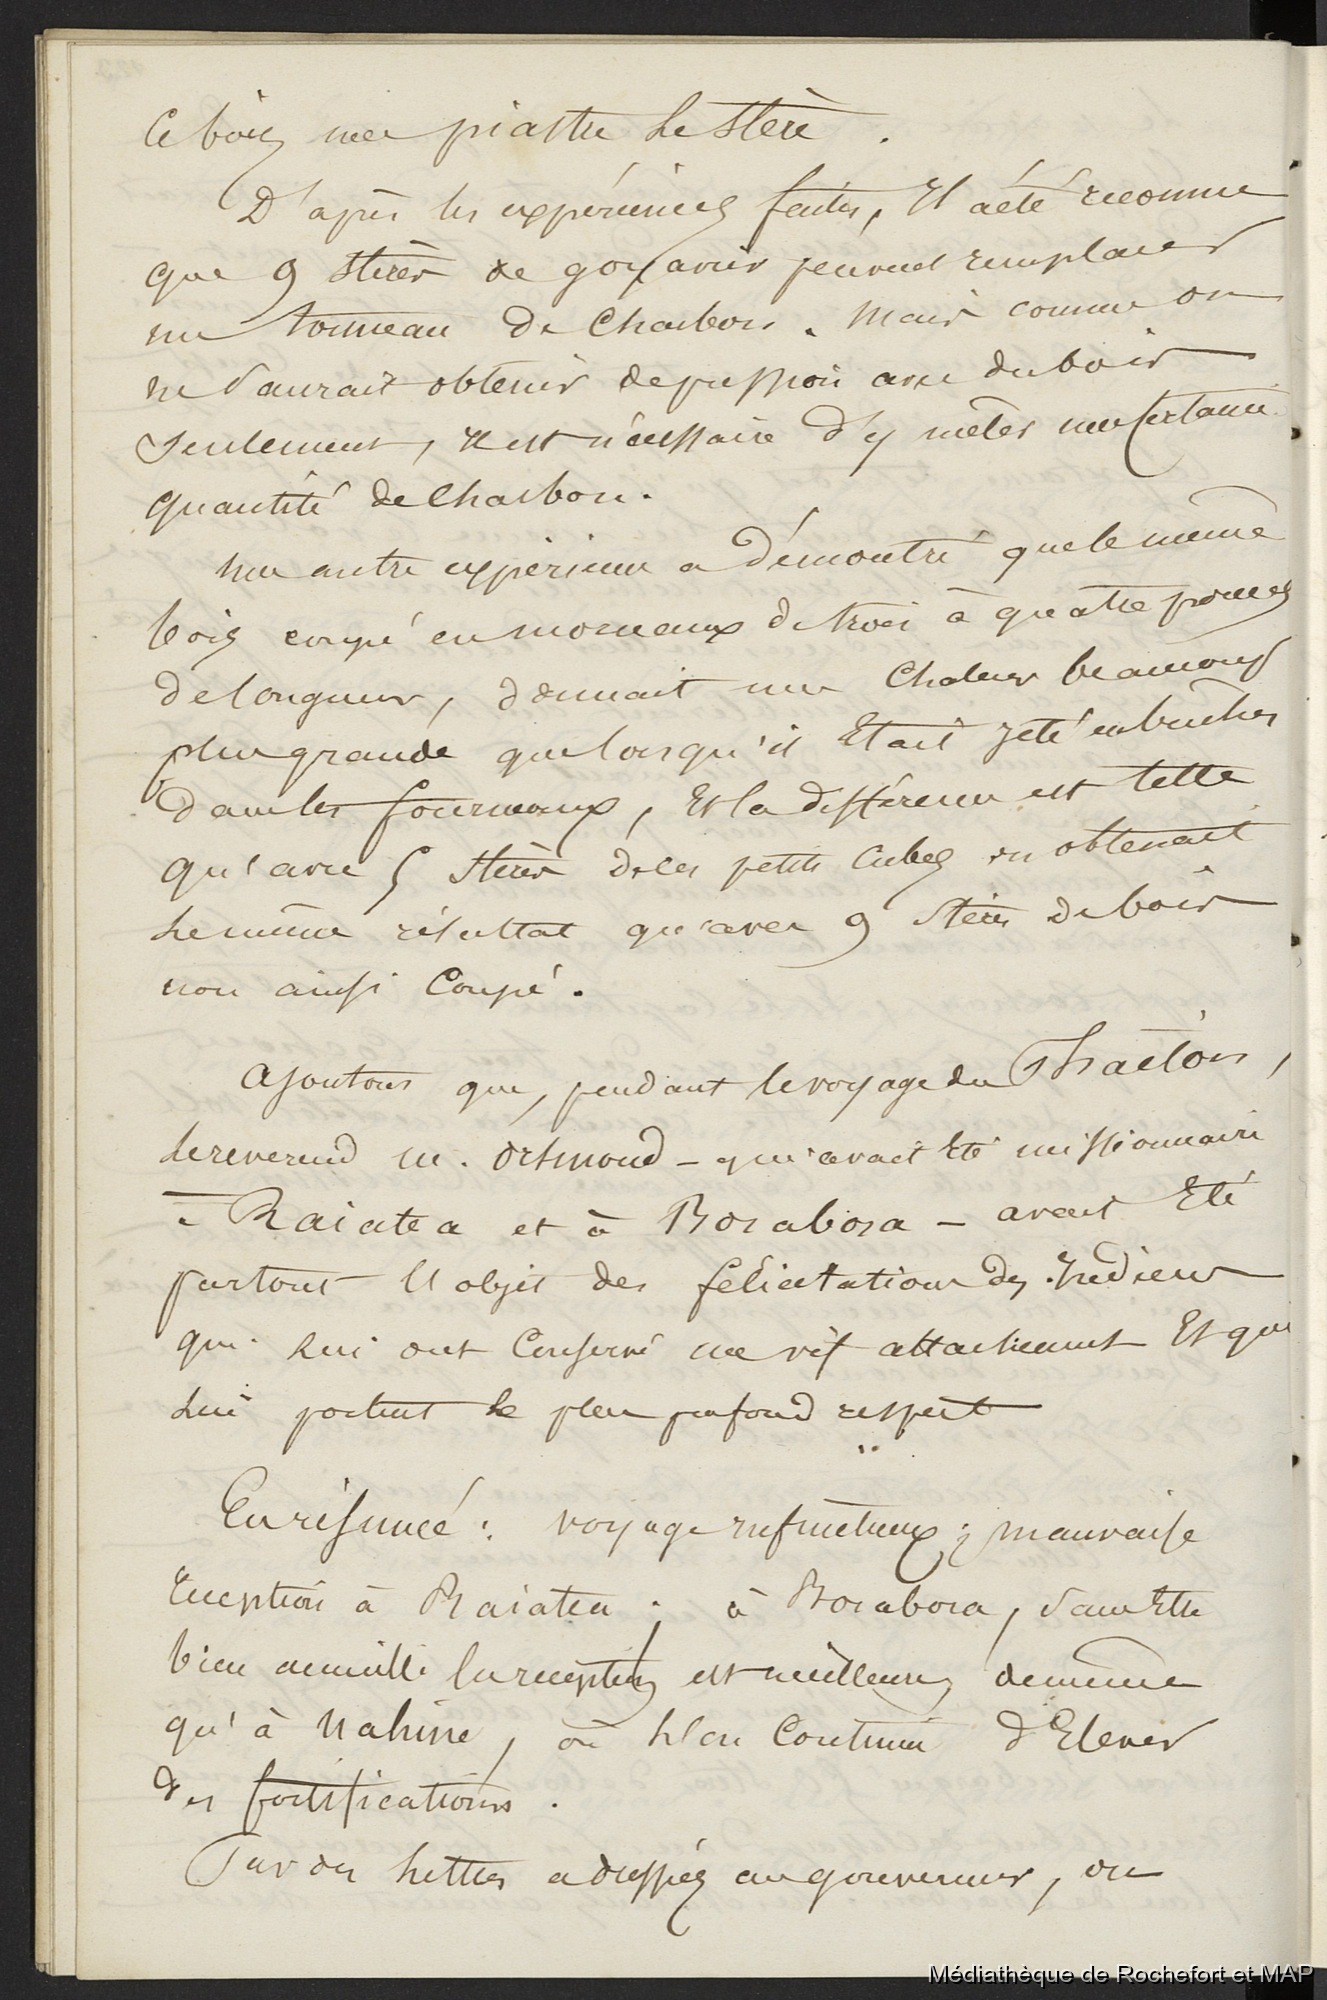 Ce bois une piastre le stère.
D'après les expériences faites, Il a été reconnu
que 9 stères de goyavier peuvent remplacer
un tonneau de Charbon. Mais comme on
ne saurait obtenir de pression avec du bois
seulement, il est nécessaire d'y mêler une certaine
quantité de Charbon.
Une autre expérience a démontré que le même
bois coupé en morceaux de trois à quatre pouces
de longueur, donnait une Chaleur beaucoup
plus grande que lorsqu'il Etait jeté en bûches
dans les fourneaux, Et la différence est telle
qu'avec 5 stères de ces petits Cubes on obtenait
le même résultat qu'avec 9 stères de bois
non ainsi Coupé.
Ajoutons que, pendant le voyage du Phaëton,
le reverend M. Orsmond - qui avait Eté missionnaire
à Raiatea et à Borabora - avait Eté
partout l'objet des félicitations des Indiens
qui lui ont Conservé un vif attachement Et qui
lui portent le plus profond respect
En résumé : voyage infructueux ; mauvaise
reception à Raiatea ; à Borabora, sans Etre
bien accueilli la reception est meilleure, de même
qu'à Uahine, où l'on Continue d'Elever
des fortifications.
Par des lettres adressées au gouverneur, on
Médiathèque de Rochefort et MAP